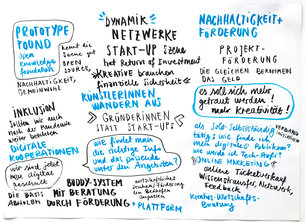 PROTOTYPE
FOUND
OPEN
KNOWLEDGE
FOUNDATION
kennt die
Szene gut
OPEN
SOURCE
NACHHALTIGKEIT,
GEMEINWOHL
INKLUSION
Sollten wir auch
nach der Pandemie
weiter
DIGITALE
KOOPERATIONEN
wir sind jetzt
was digital
DIE BASIS
ABHOLEN
DYNAMIK
NETZWERKE
START-UP Szene
hat Return of Investment
KREATIVE branchen
finanzielle Sicherheit
KÜNSTLERINNEN
WANDERN AUS
GRÜNDERINNEN
STATT START-UPS
wie findet man
die richtige Info
und das passende
unter den Angeboten?
BUDDY-SYSTEM
MIT BERATUNG
DURCH FÖRDERUNG
wirtschaftliches
PLATTFORM
NACHHALTIGKEIT+
FÖRDERUNG
PROJEKT-
FÖRDERUNG
DIE GLEICHEN BEKOMMEN
DAS GELD
es soll sich mehr
getraut werden!
mehr Kreativität!
als Solo-Selbstständige
mein digitales Publikum?
ONLINE MARKETING?
online Ticketverkauf
Wissenstransfer, Netzwerk,
Feedback
Kreativ-Wirtschafts-
Beratung